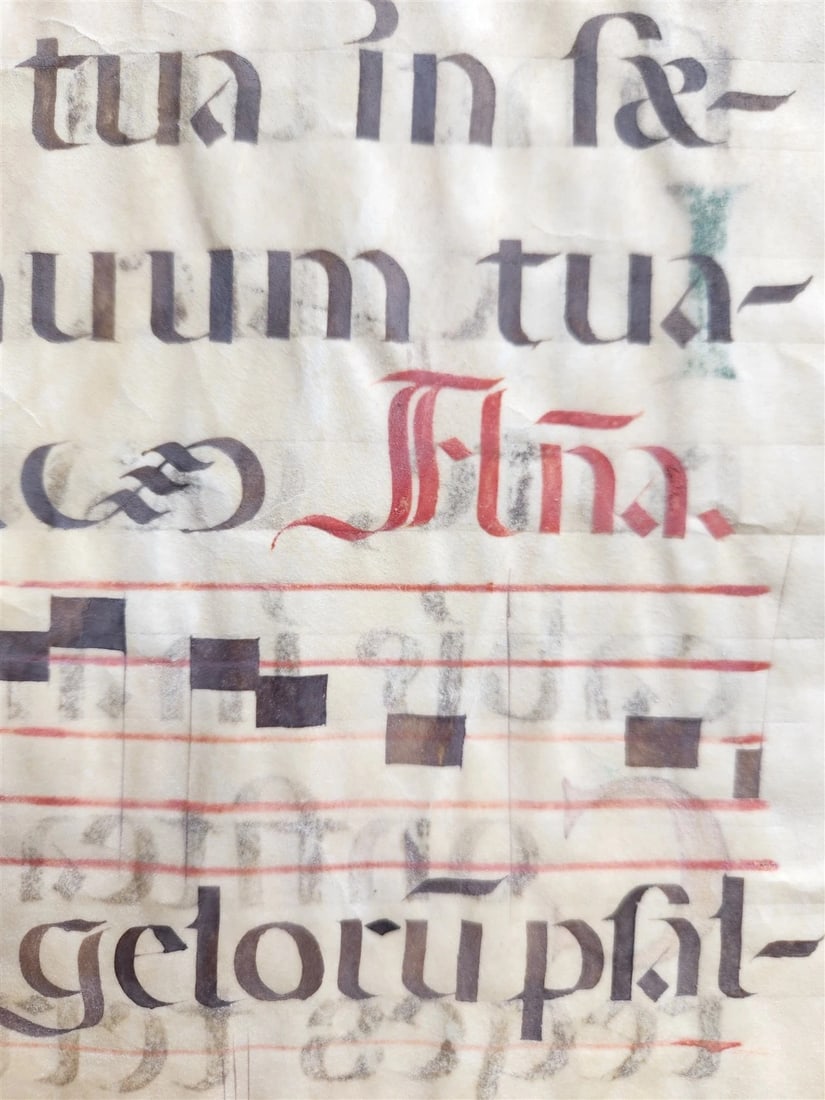 tua in ſæ-
uum tua-
Aña.
gelorū pſal-